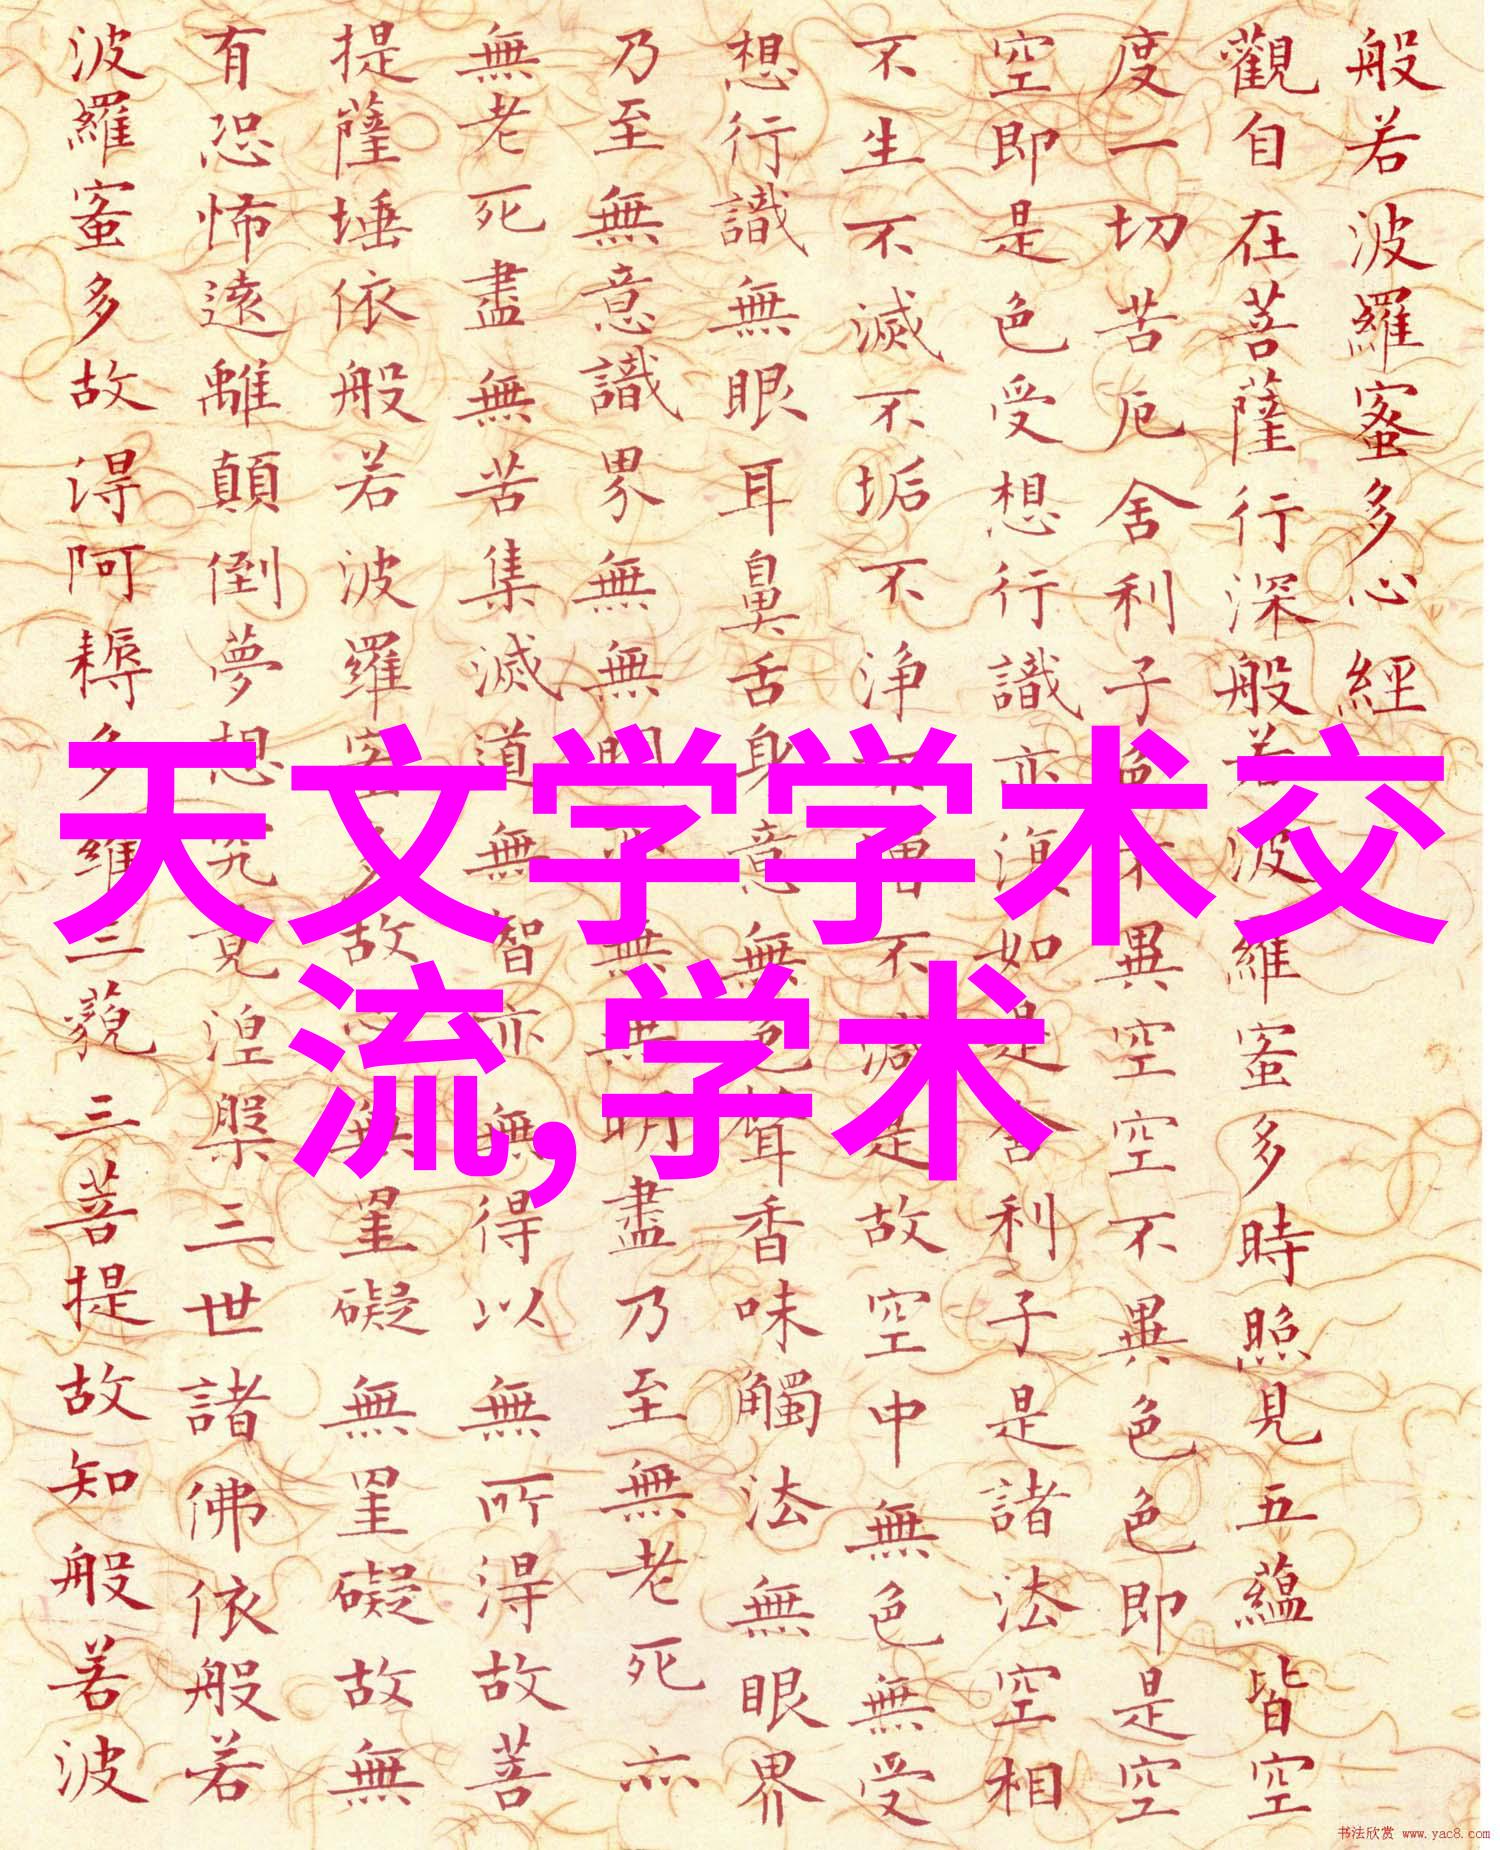 般若波羅蜜多心經
觀自在菩薩行深般若波羅蜜多時照見五蘊皆空
度一切苦厄舍利子色不異空空不異色色即是空
空即是色受想行識亦復如是舍利子是諸法空相
不生不滅不垢不淨不增不減是故空中無色無受
想行識無眼耳鼻舌身意無色聲香味觸法無眼界
乃至無意識界無無明亦無無明盡乃至無老死亦
無老死盡無苦集滅道無智亦無得以無所得故菩
提薩埵依般若波羅蜜多故心無罣礙無罣礙故無
有恐怖遠離顛倒夢想究竟涅槃三世諸佛依般若
波羅蜜多故得阿耨多羅三藐三菩提故知般若波
天文学学术交
流,学术
书法欣赏 www.yac8.com